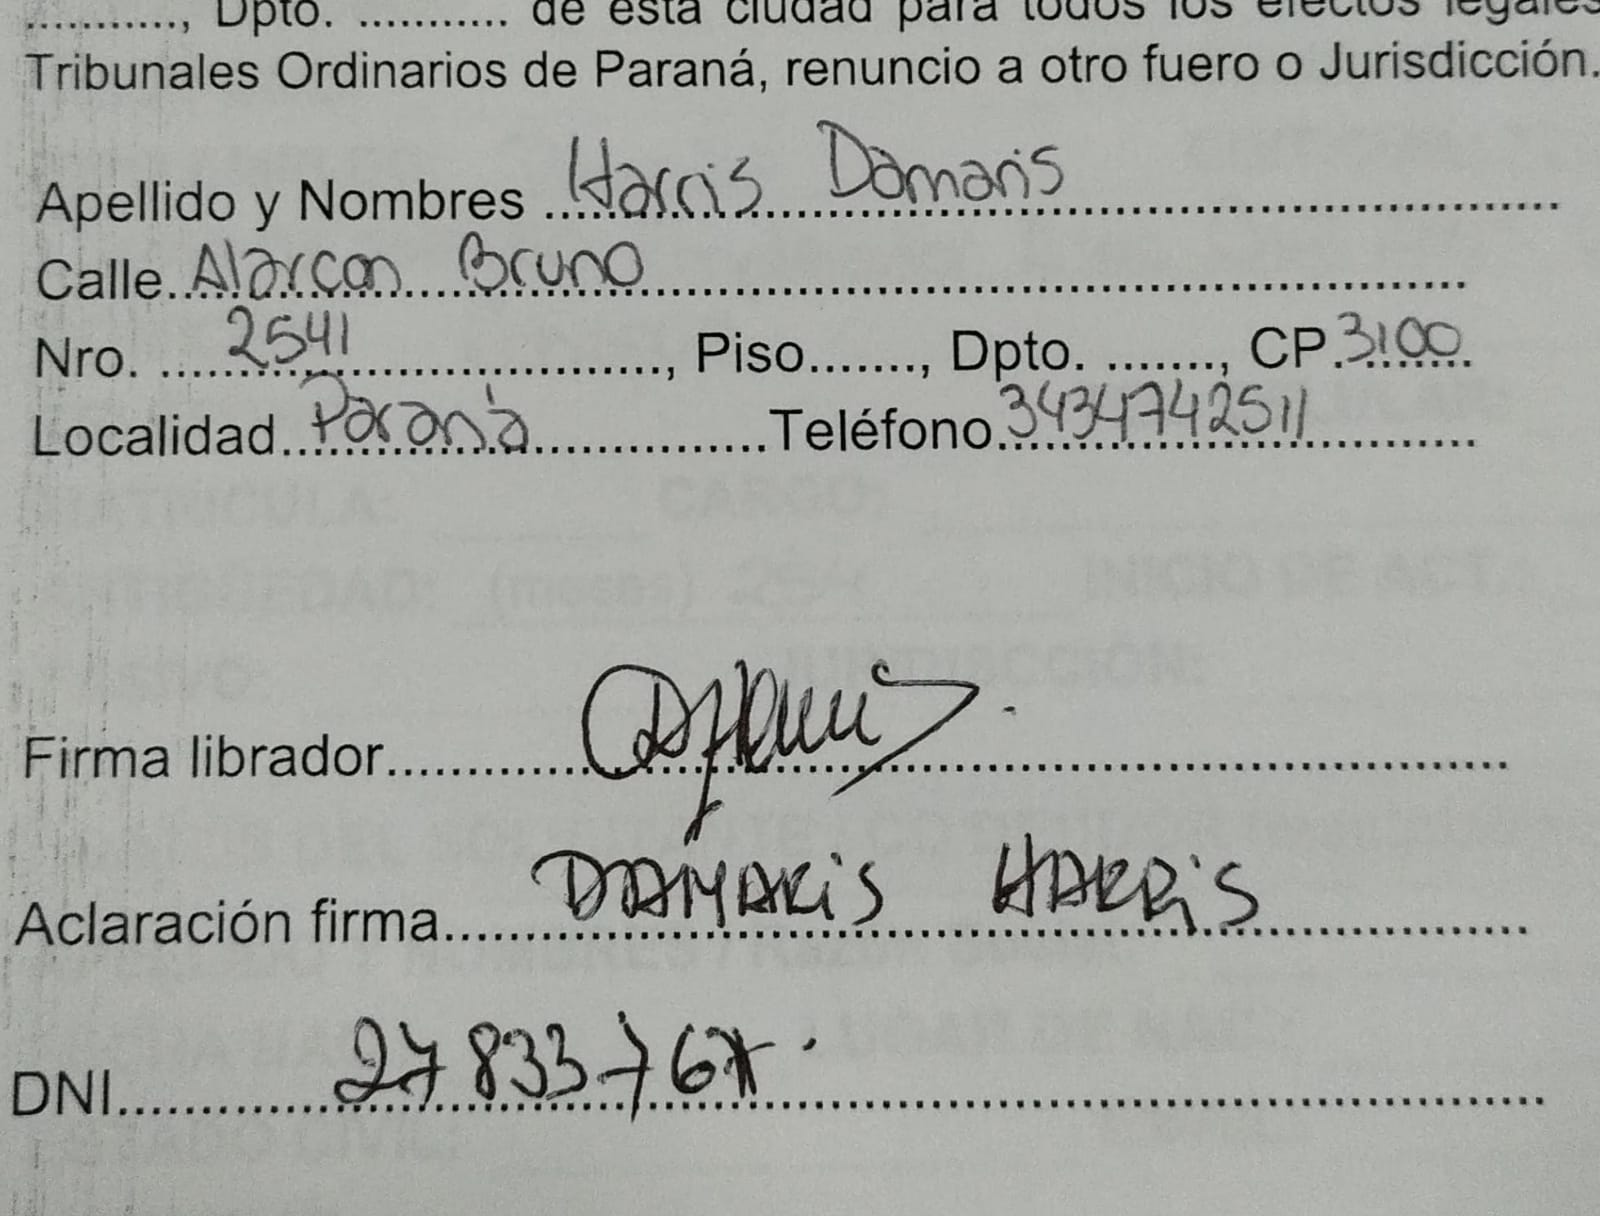 ..........., Dpto. ........... de esta ciudad para todos los efectos legales
Tribunales Ordinarios de Paraná, renuncio a otro fuero o Jurisdicción.
Apellido y Nombres Harris Damaris
Calle Alarcon Bruno
Nro. 2541, Piso........, Dpto. ........, CP.3100
Localidad Paraná Teléfono 3434742511
MATRICULA: CARGO:
ANTIGÜEDAD: (meses) INICIO DE ACT.:
JURISDICCION:
Firma librador
Aclaración firma DAMARIS HARRIS
DNI 27833767